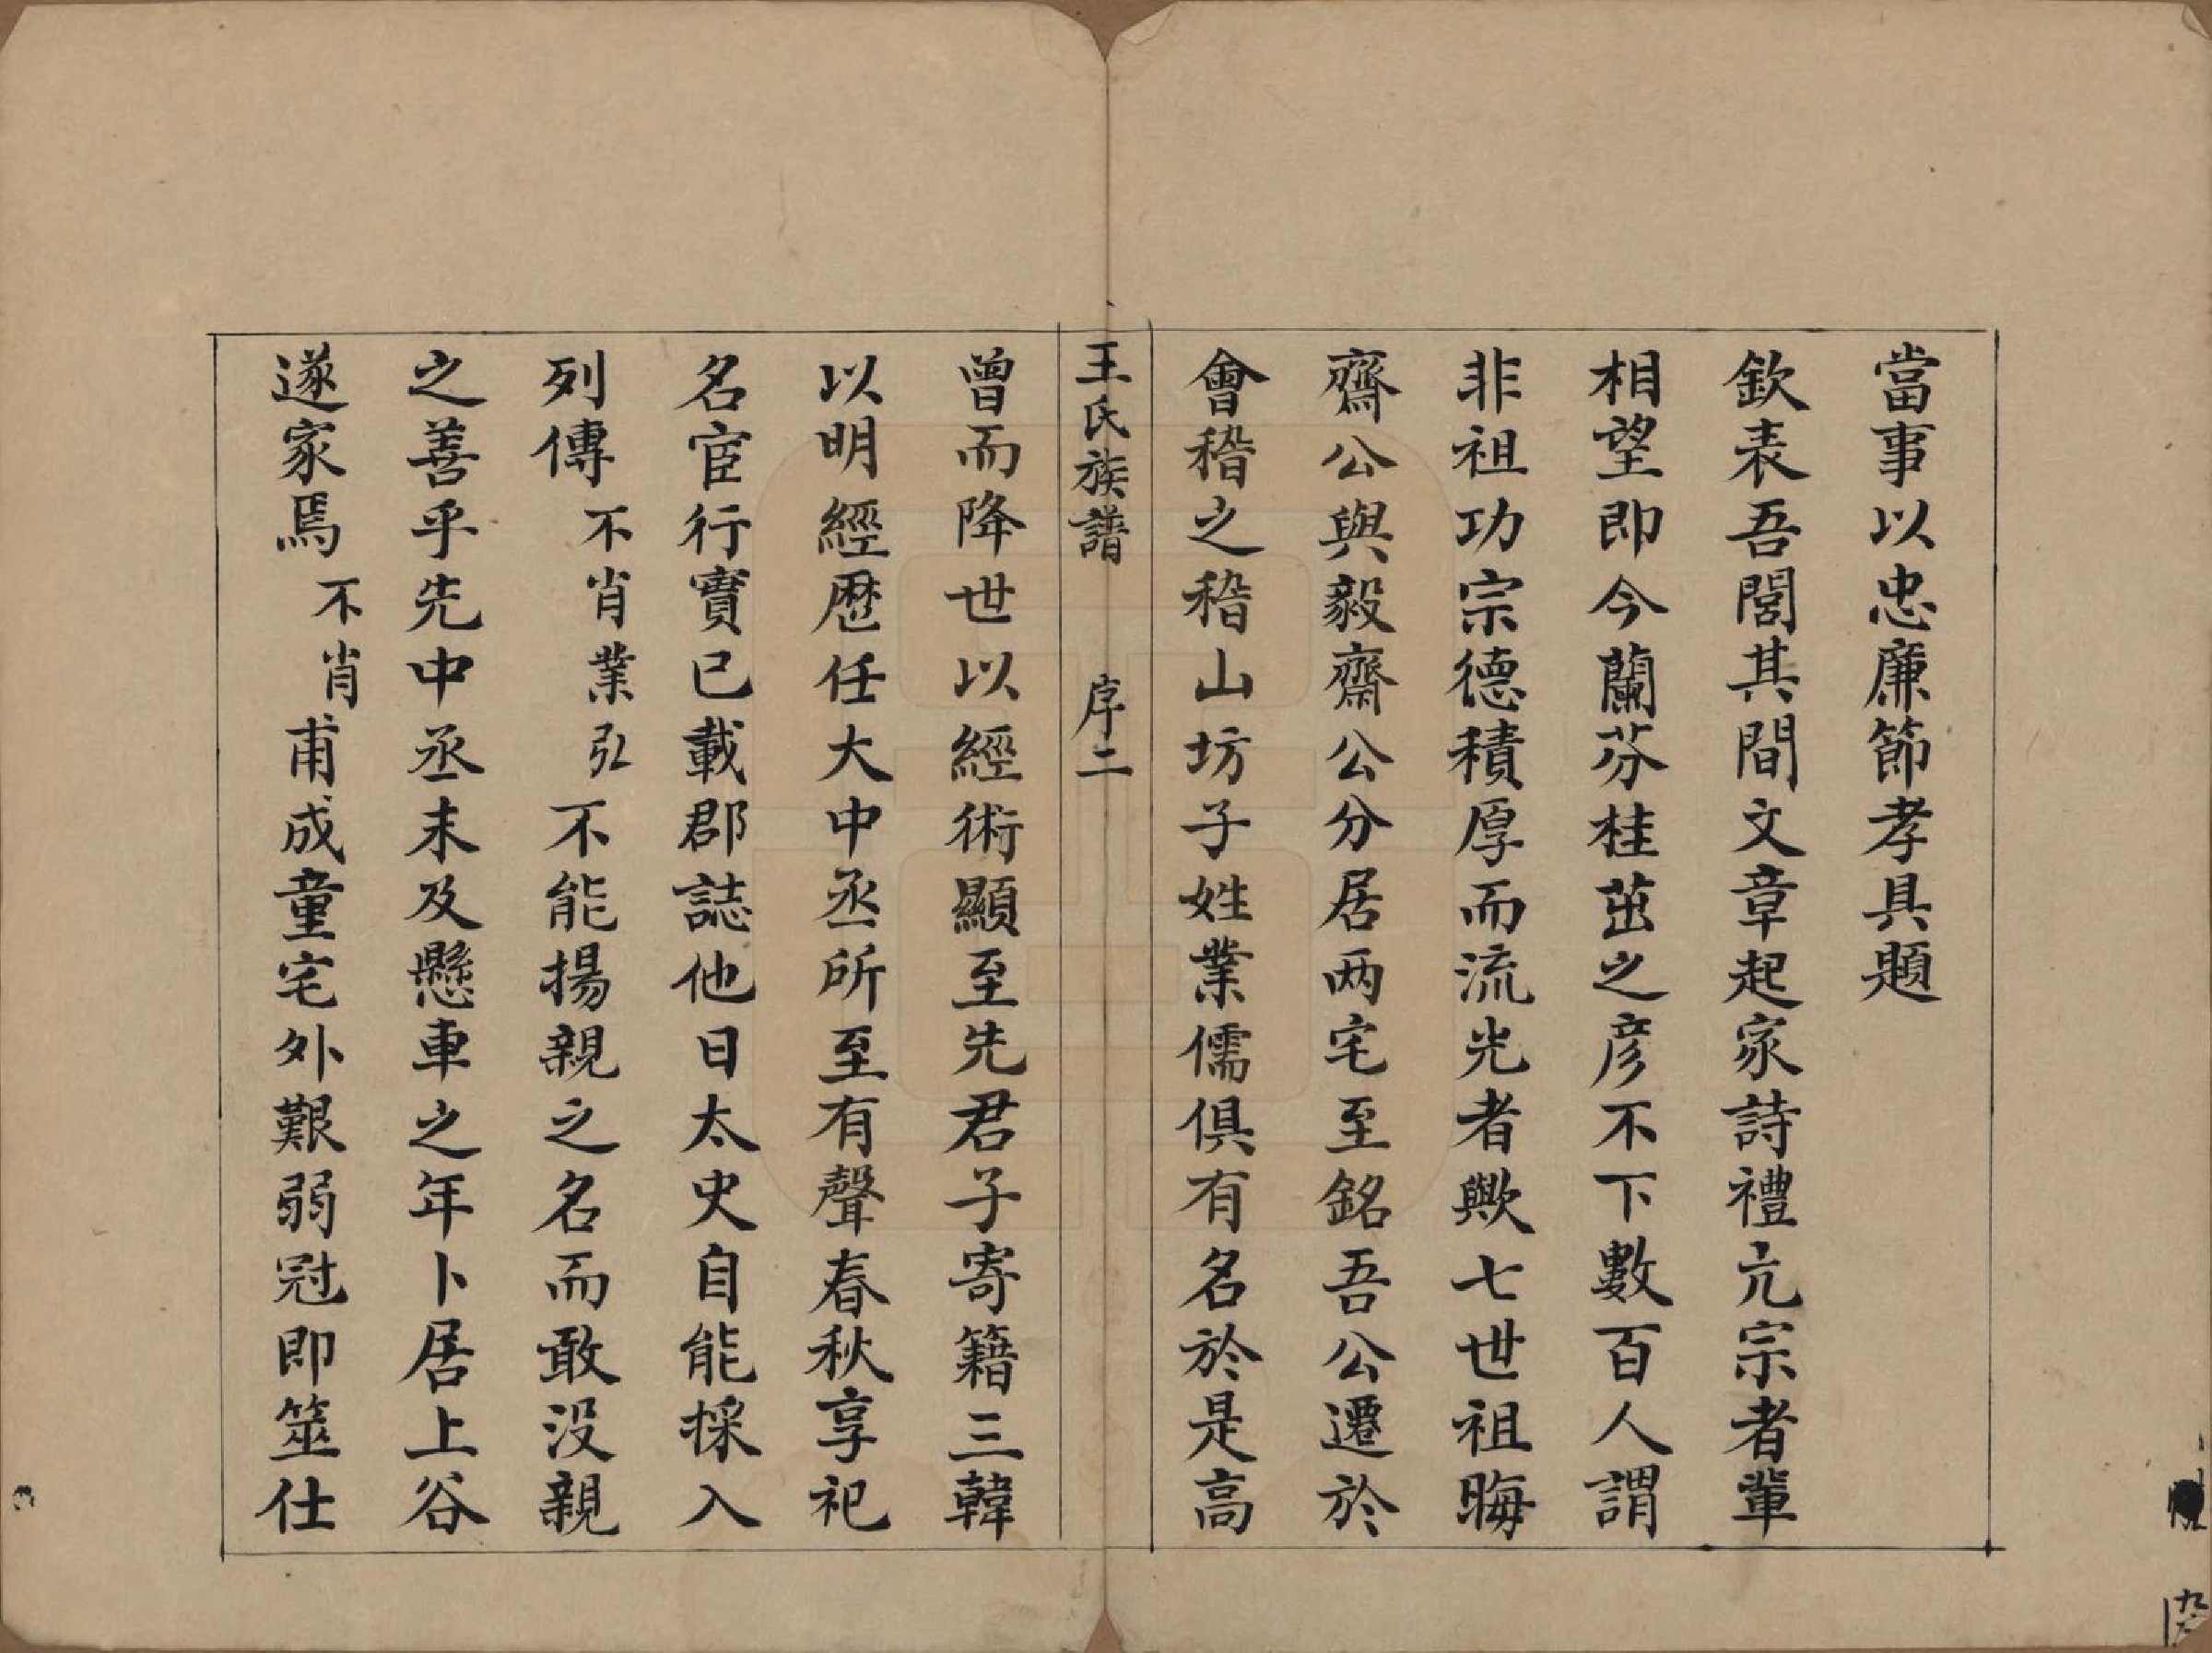 當事以忠廉節孝具題
欽表吾閭其間文章起家詩禮亢宗者輩
相望即今蘭芬桂茁之彦不下數百人謂
非祖功宗德積厚而流光者歟七世祖晦
齋公與毅齋公分居两宅至銘吾公遷於
會稽之稽山坊子姓業儒俱有名於是高
王氏族譜 序二
曾而降世以經術顯至先君子寄籍三韓
以明經歷任大中丞所至有聲春秋享祀
名宦行實已載郡誌他日太史自能採入
列傳不肖業弘不能揚親之名而敢没親
之善乎先中丞未及懸車之年卜居上谷
遂家焉不肖甫成童宅外艱弱冠即筮仕